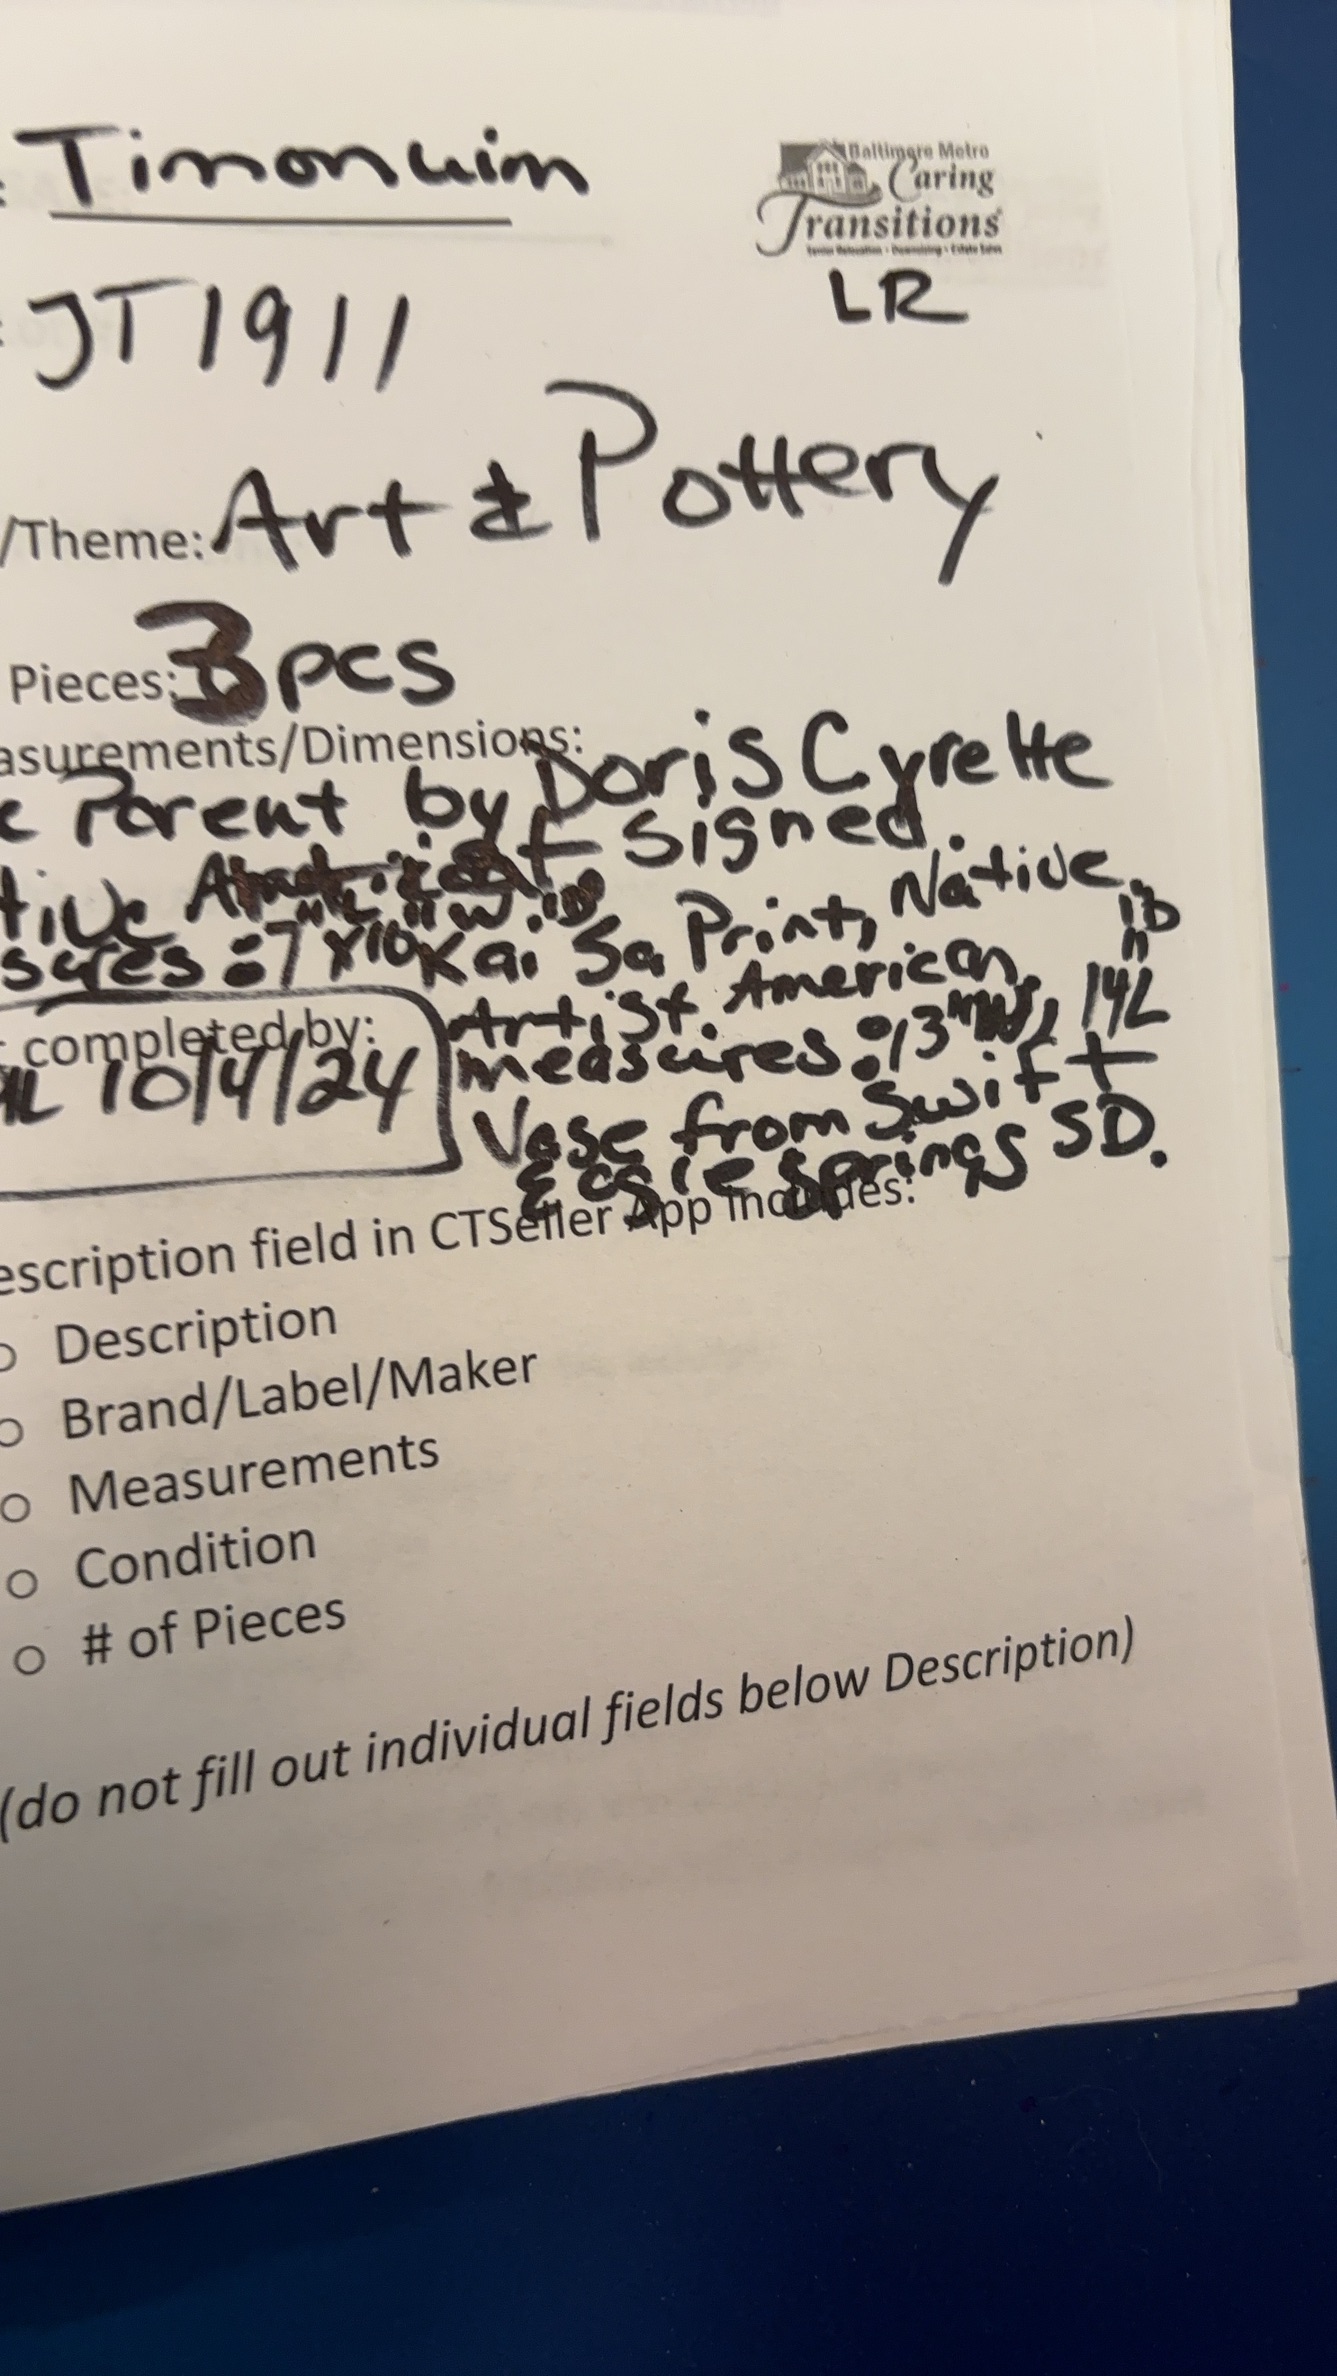 Timonuim
Baltimore Metro
Caring
Transitions
Senior Relocation • Downsizing • Estate Sales
LR
JT1911
/Theme: Art & Pottery
Pieces: 3 pcs
asurements/Dimensions:
Parent by Doris Cyrette
tive signed.
sures: 7"L x 10"w. Kai Sa Print, Native
Artist. American
measures: 13 14L
completed by:
10/4/24
Vase from Swift +
Eagle Springs SD.
escription field in CTSeller App includes:
Description
Brand/Label/Maker
Measurements
Condition
# of Pieces
(do not fill out individual fields below Description)